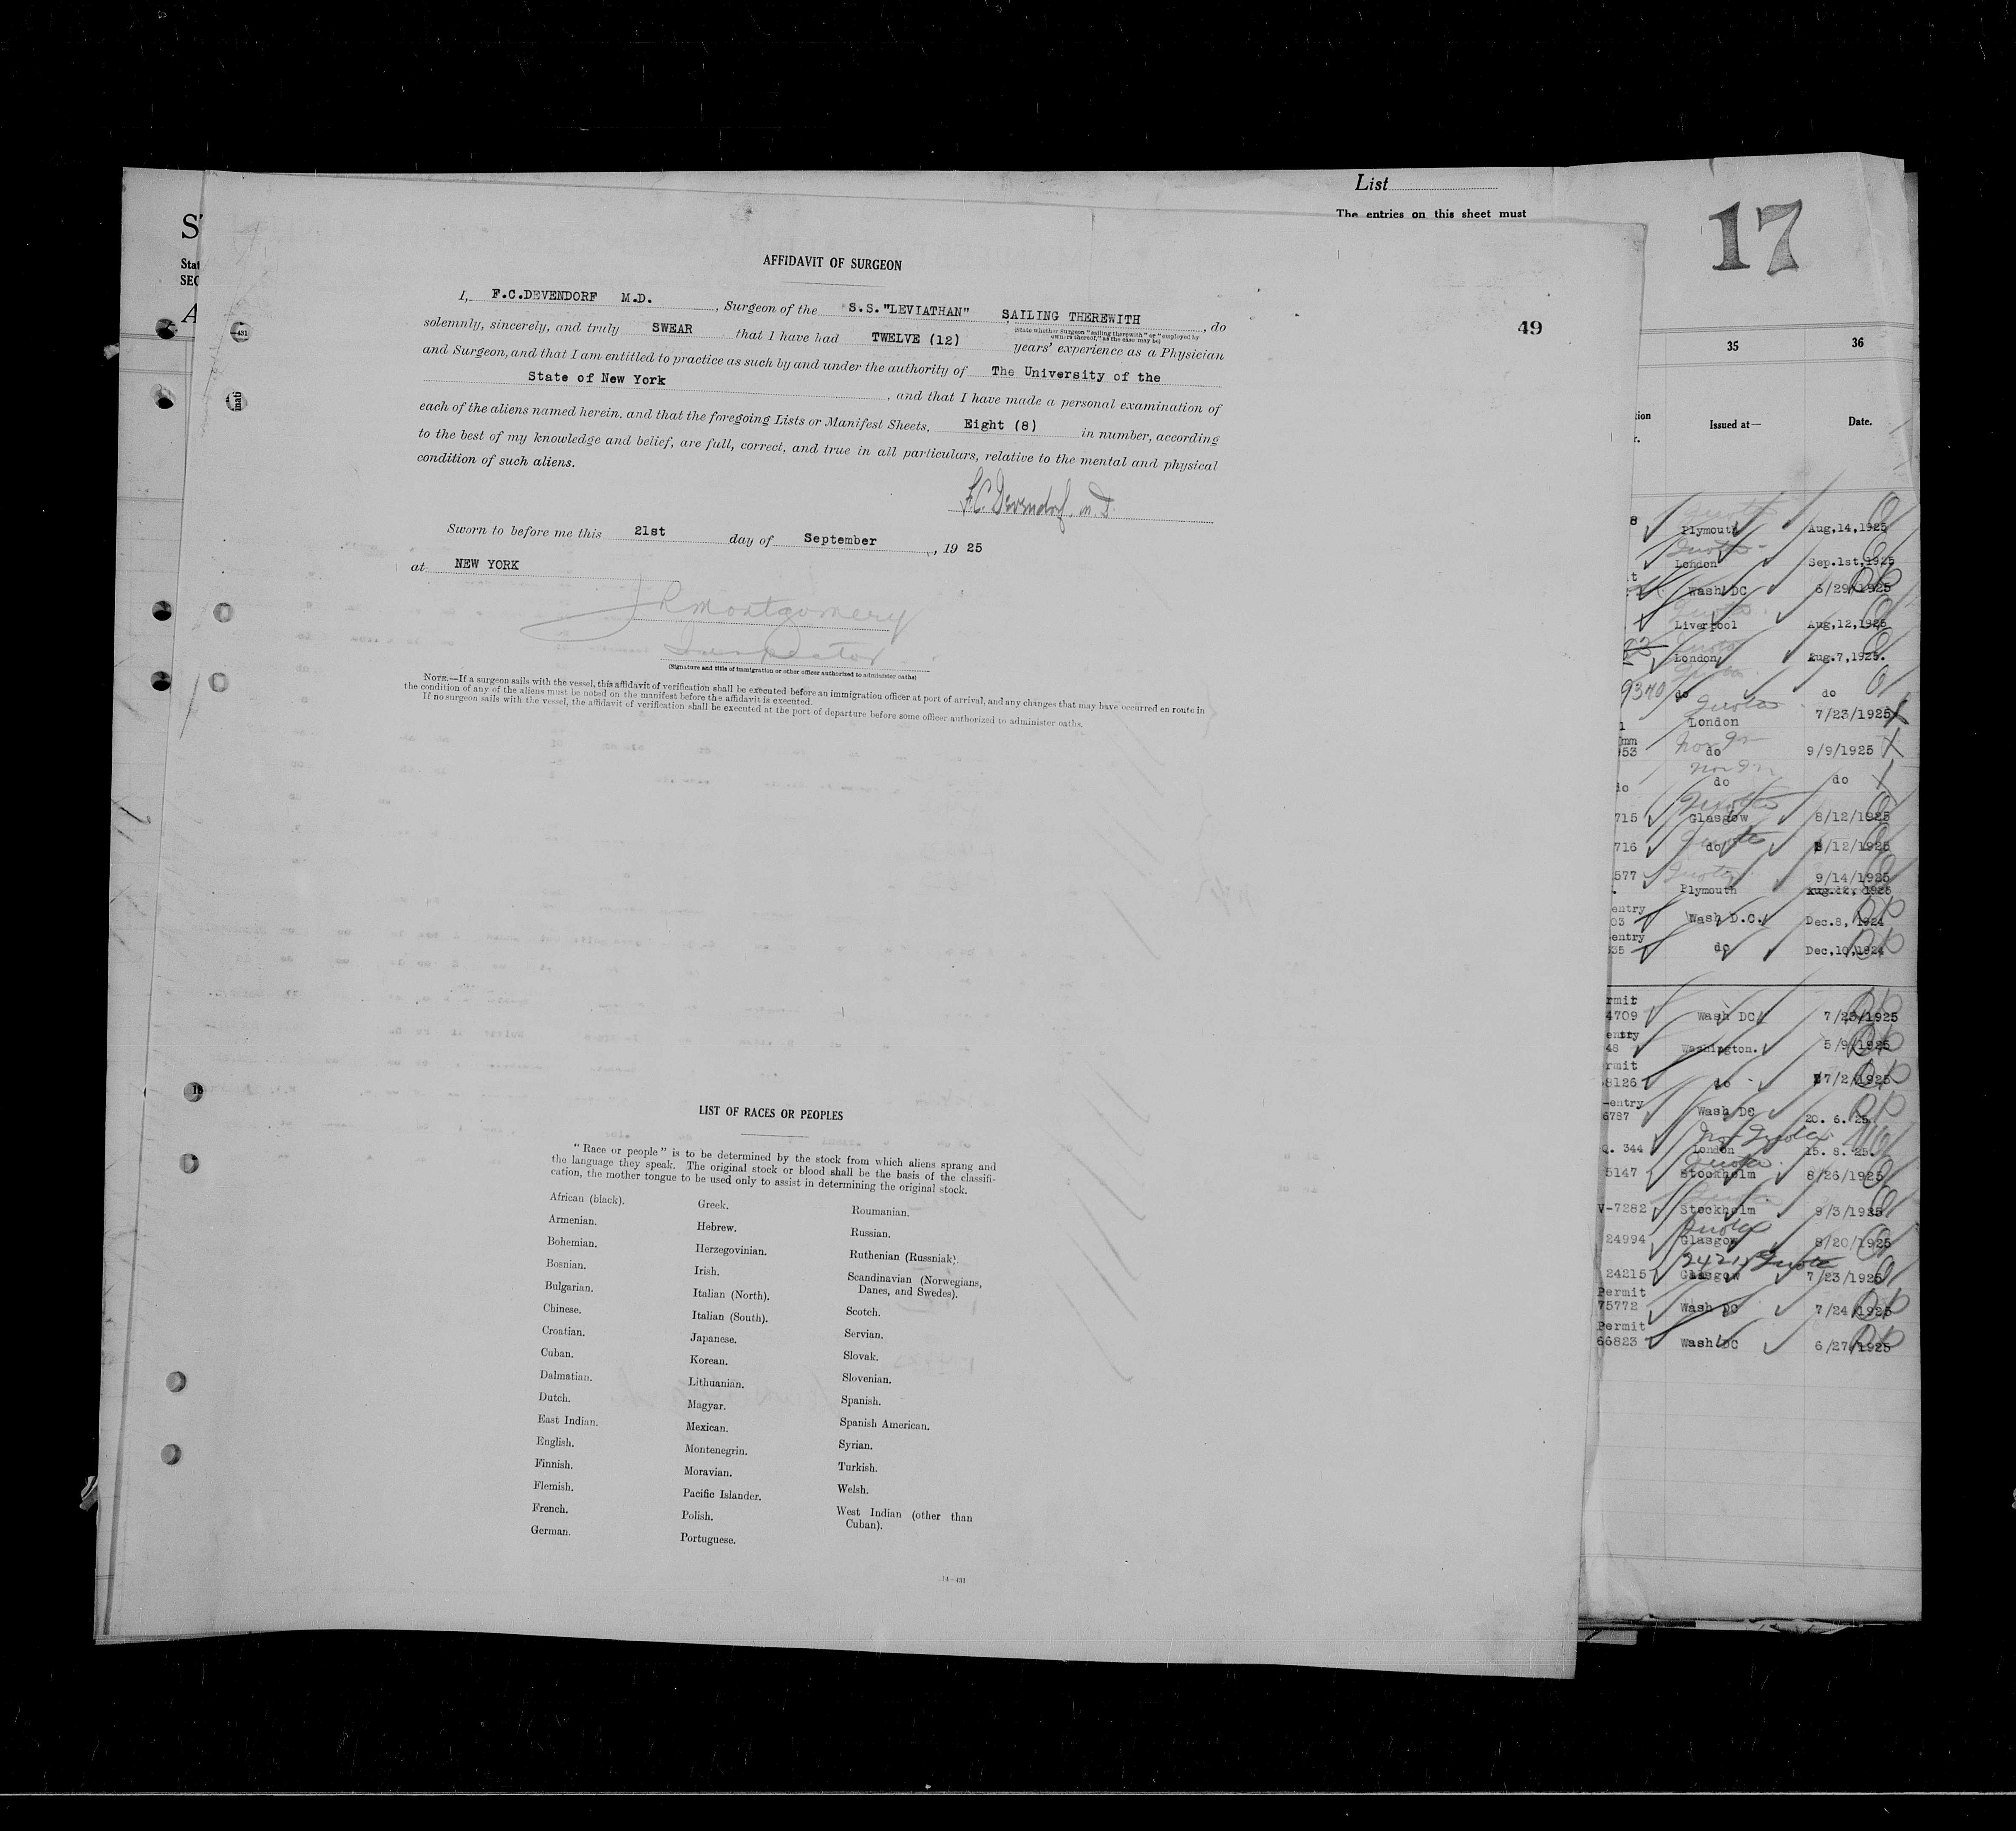 List
The entries on this sheet must
17
AFFIDAVIT OF SURGEON
I, F.C.DEVENDORF M.D. , Surgeon of the S.S."LEVIATHAN" SAILING THEREWITH , do
(State whether Surgeon "sailing therewith" or "employed by
owners thereof," as the case may be)
solemnly, sincerely, and truly SWEAR that I have had TWELVE (12) years' experience as a Physician
and Surgeon, and that I am entitled to practice as such by and under the authority of The University of the
State of New York , and that I have made a personal examination of
each of the aliens named herein, and that the foregoing Lists or Manifest Sheets, Eight (8) in number, according
to the best of my knowledge and belief, are full, correct, and true in all particulars, relative to the mental and physical
condition of such aliens.
F.C. Devendorf. M.D.
Sworn to before me this 21st day of September , 19 25
at NEW YORK
J R Montgomery
Inspector
(Signature and title of immigration or other officer authorized to administer oaths)
NOTE.—If a surgeon sails with the vessel, this affidavit of verification shall be executed before an immigration officer at port of arrival, and any changes that may have occurred en route in
the condition of any of the aliens must be noted on the manifest before the affidavit is executed.
If no surgeon sails with the vessel, the affidavit of verification shall be executed at the port of departure before some officer authorized to administer oaths.
49
LIST OF RACES OR PEOPLES
"Race or people" is to be determined by the stock from which aliens sprang and
the language they speak. The original stock or blood shall be the basis of the classifi-
cation, the mother tongue to be used only to assist in determining the original stock.
African (black).
Armenian.
Bohemian.
Bosnian.
Bulgarian.
Chinese.
Croatian.
Cuban.
Dalmatian.
Dutch.
East Indian.
English.
Finnish.
Flemish.
French.
German.
Greek.
Hebrew.
Herzegovinian.
Irish.
Italian (North).
Italian (South).
Japanese.
Korean.
Lithuanian.
Magyar.
Mexican.
Montenegrin.
Moravian.
Pacific Islander.
Polish.
Portuguese.
Roumanian.
Russian.
Ruthenian (Russniak).
Scandinavian (Norwegians,
Danes, and Swedes).
Scotch.
Servian.
Slovak.
Slovenian.
Spanish.
Spanish American.
Syrian.
Turkish.
Welsh.
West Indian (other than
Cuban).
14—431
35 36
Issued at— Date.
Plymouth Aug,14,1925
London Sep.1st,1925
Wash DC 6/29/1925
Liverpool Aug,12,1925
London Aug.7,1925.
9340 do do
London 7/23/1925
53 do 9/9/1925
do do do
715 Glasgow 8/12/1925
716 do 8/12/1925
577 9/14/1925
Plymouth
entry
03 Wash D.C. Dec.8, 1924
entry
35 do Dec,10,1924
rmit
4709 Wash DC 7/23/1925
entry
48 Washington. 5/9/1925
rmit
8126 do 7/2/1925
-entry
6787 Wash DC 20. 6. 25.
Q. 344 London 15. 8. 25.
5147 Stockholm 8/26/1925
V-7282 Stockholm 9/3/1925
24994 Glasgow 8/20/1925
24215 Quota
24215 Glasgow 7/23/1925
Permit
75772 Wash DC 7/24/1925
Permit
66823 Wash DC 6/27/1925